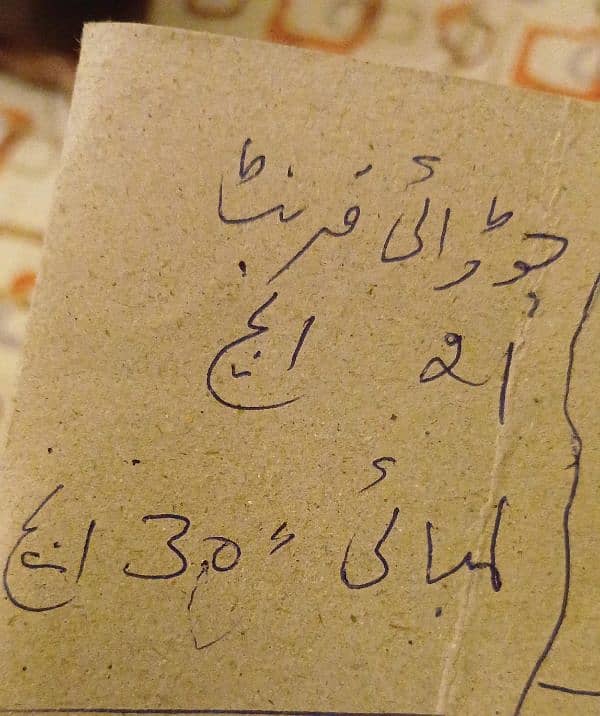 چوڑائی فرنٹ
21 انچ
لمبائی 30 انچ